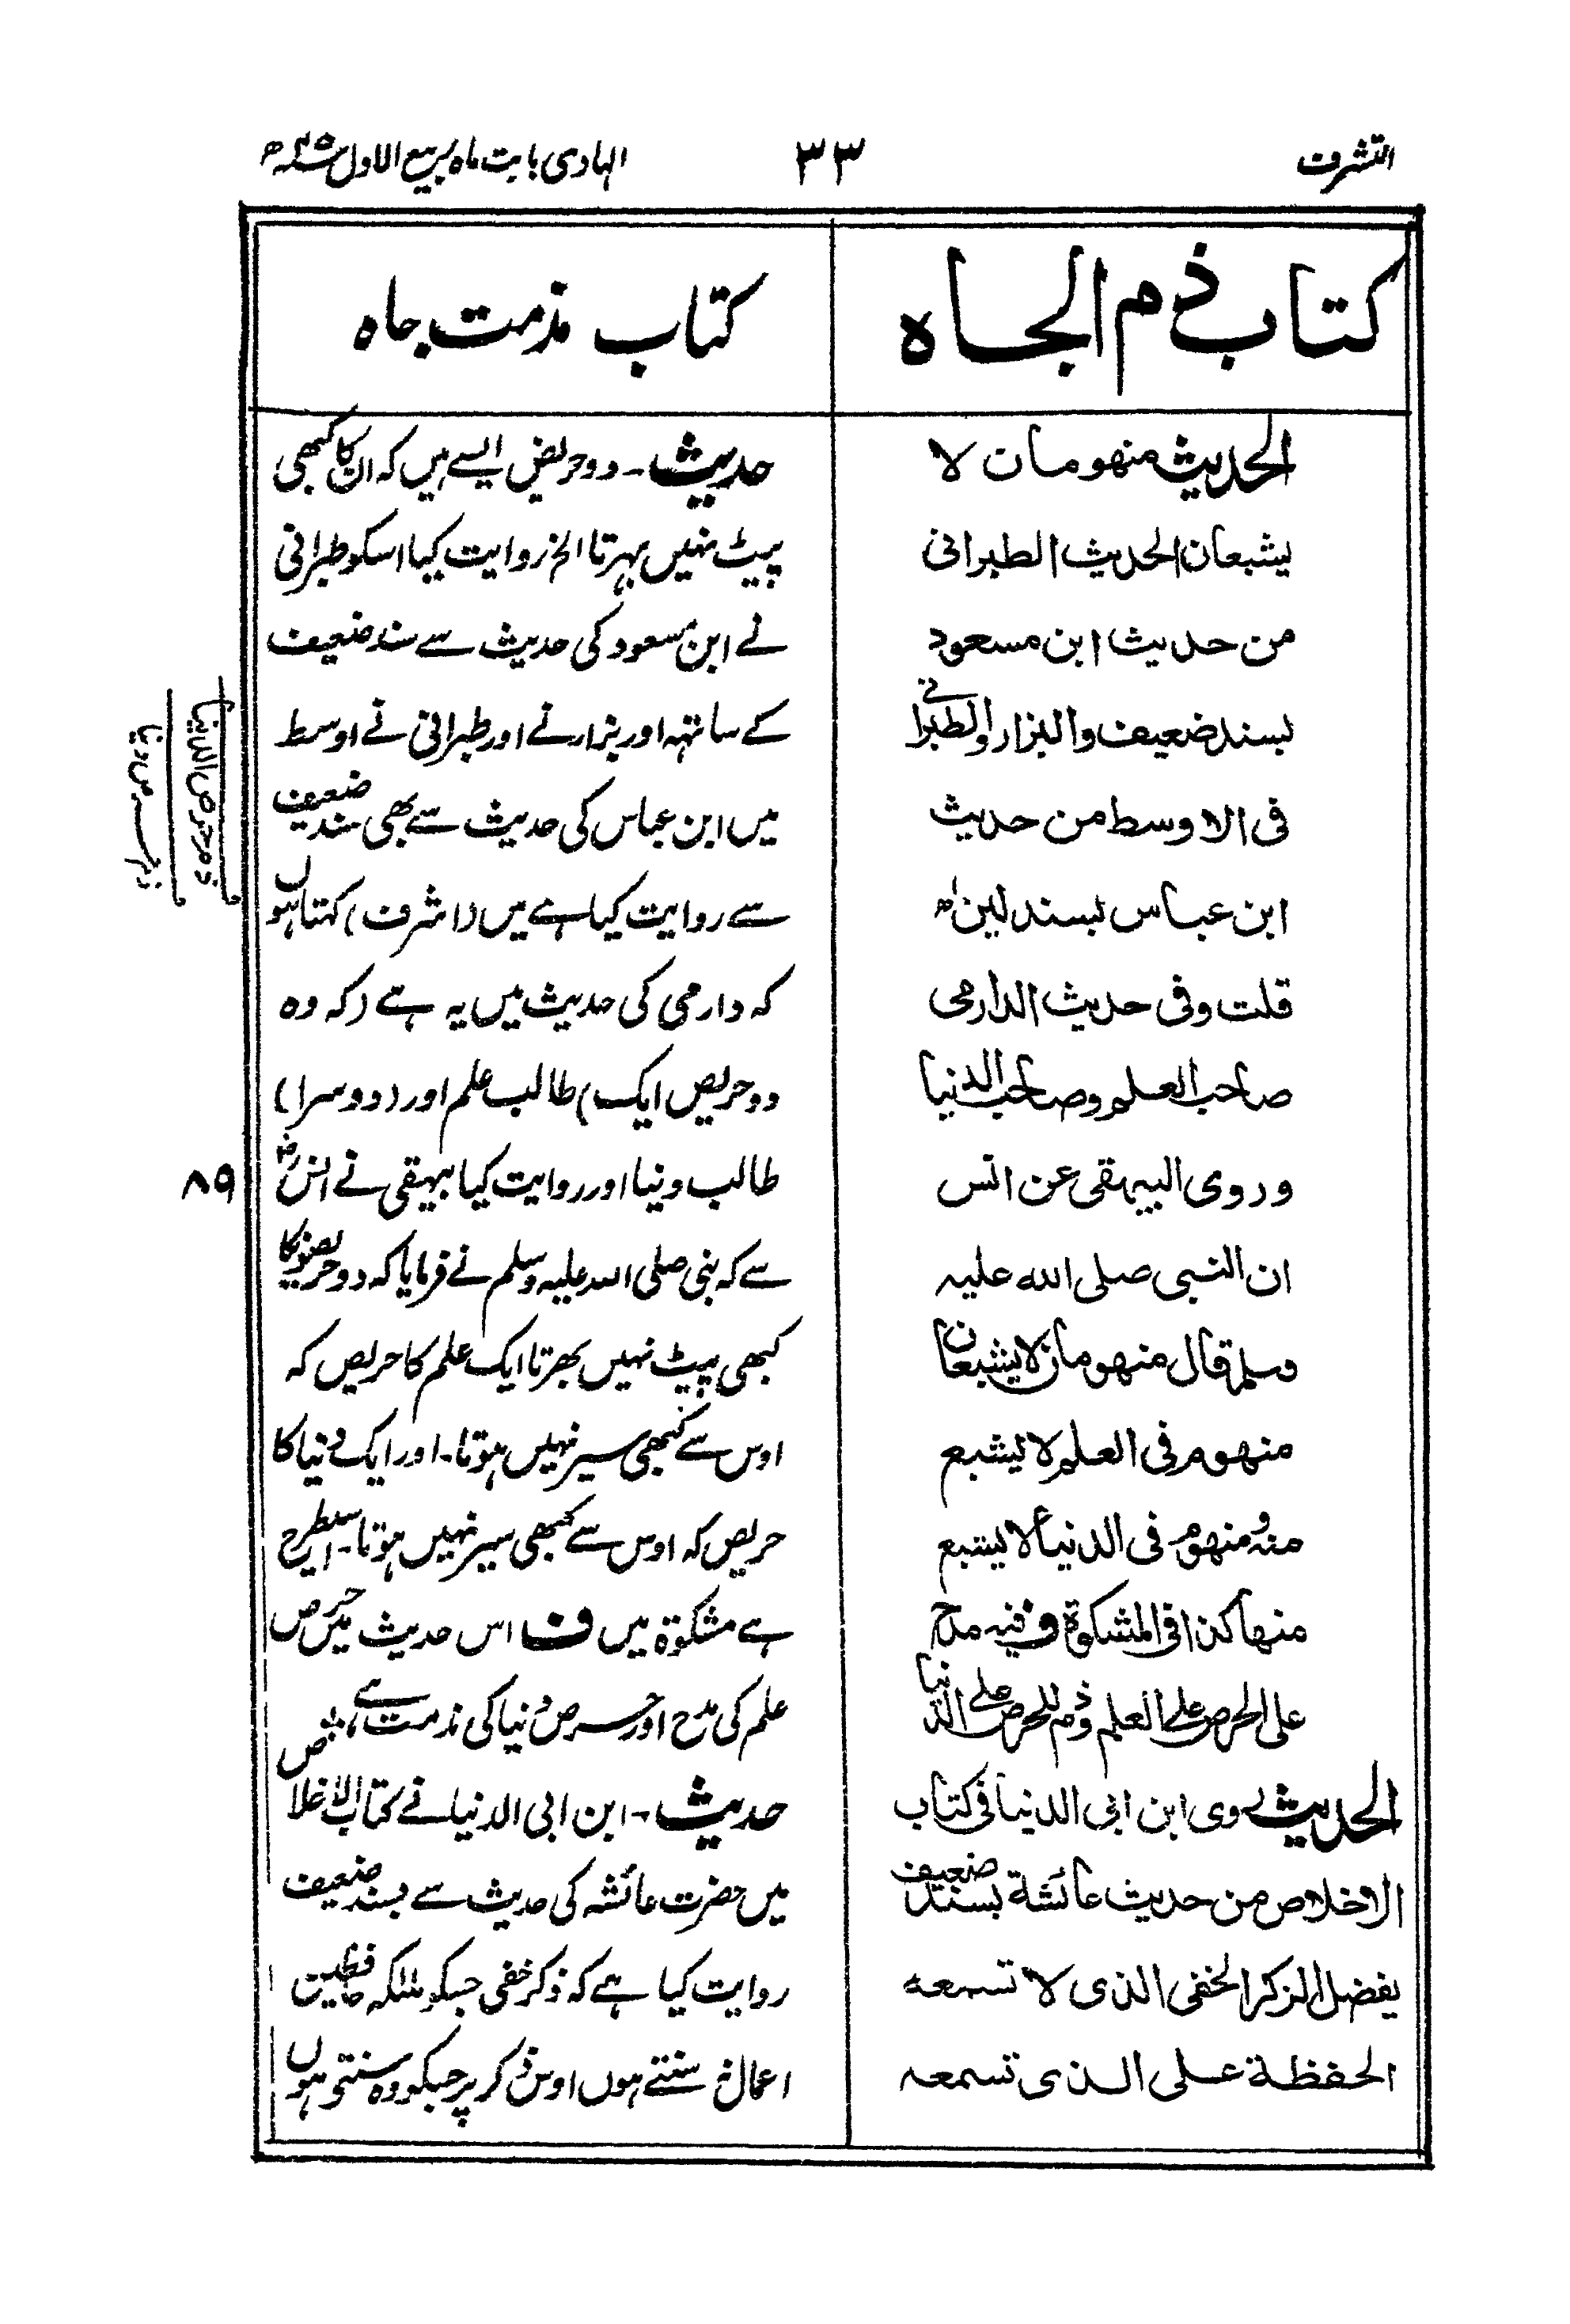 التشرف
۳۳
الہادی بابت ماہ ربیع الاول
کتاب ذم الجاہ
الحدیث منهومان لا
یشبعان الحدیث الطبرانی
من حدیث ابن مسعود
بسند ضعیف والبزار والطبرانی
فی الاوسط من حدیث
ابن عباس بسند لین اھ
قلت وفی حدیث الدارمی
صاحب العلم وصاحب الدنیا
وروی البیہقی عن انس
ان النبی صلی اللہ علیہ
وسلم قال منهومان لا یشبعان
منهوم فی العلم لا یشبع
منه ومنهوم فی الدنیا لا یشبع
منها کذا فی المشکوة ف فیه مدح
علی الحرص علی العلم وذم للحرص علی الدنیا
الحدیث روی ابن ابی الدنیا فی کتاب
الاخلاص من حدیث عائشة بسند ضعیف
یفضل الذکر الخفی الذی لا تسمعه
الحفظة علی الذی تسمعه
کتاب مذمت جاہ
حدیث۔ دو حریص ایسے ہیں کہ ان کا کبھی
پیٹ نہیں بہرتا الخ روایت کیا اسکو طبرانی
نے ابن مسعود کی حدیث سے سند ضعیف
کے ساتہہ اور بزار نے اور طبرانی نے اوسط
میں ابن عباس کی حدیث سے بھی سند ضعیف
سے روایت کیا ہے میں (اشرف) کہتا ہوں
کہ دارمی کی حدیث میں یہ ہے (کہ وہ
دو حریص ایک) طالب علم اور (دوسرا)
طالب دنیا اور روایت کیا بیہقی نے انسؓ
سے کہ نبی صلی اللہ علیہ وسلم نے فرمایا کہ دو حریصونکا
کبھی پیٹ نہیں بھرتا ایک علم کا حریص کہ
اوس سے کبھی سیر نہیں ہوتا۔ اور ایک دنیا کا
حریص کہ اوس سے کبھی سیر نہیں ہوتا۔ اسیطرح
ہے مشکوۃ میں ف اس حدیث میں حرص
علم کی مدح اور حرص دنیا کی مذمت ہے،
حدیث۔ ابن ابی الدنیا نے کتاب الاخلاص
میں حضرت عائشہ کی حدیث سے بسند ضعیف
روایت کیا ہے کہ ذکر خفی جسکو ملئکہ حافظین
اعمال نہ سنتے ہوں اوس ذکر پر جسکو وہ سنتے ہوں
ذم حرص الدنیا
ذم حرص دنیا
۸۹